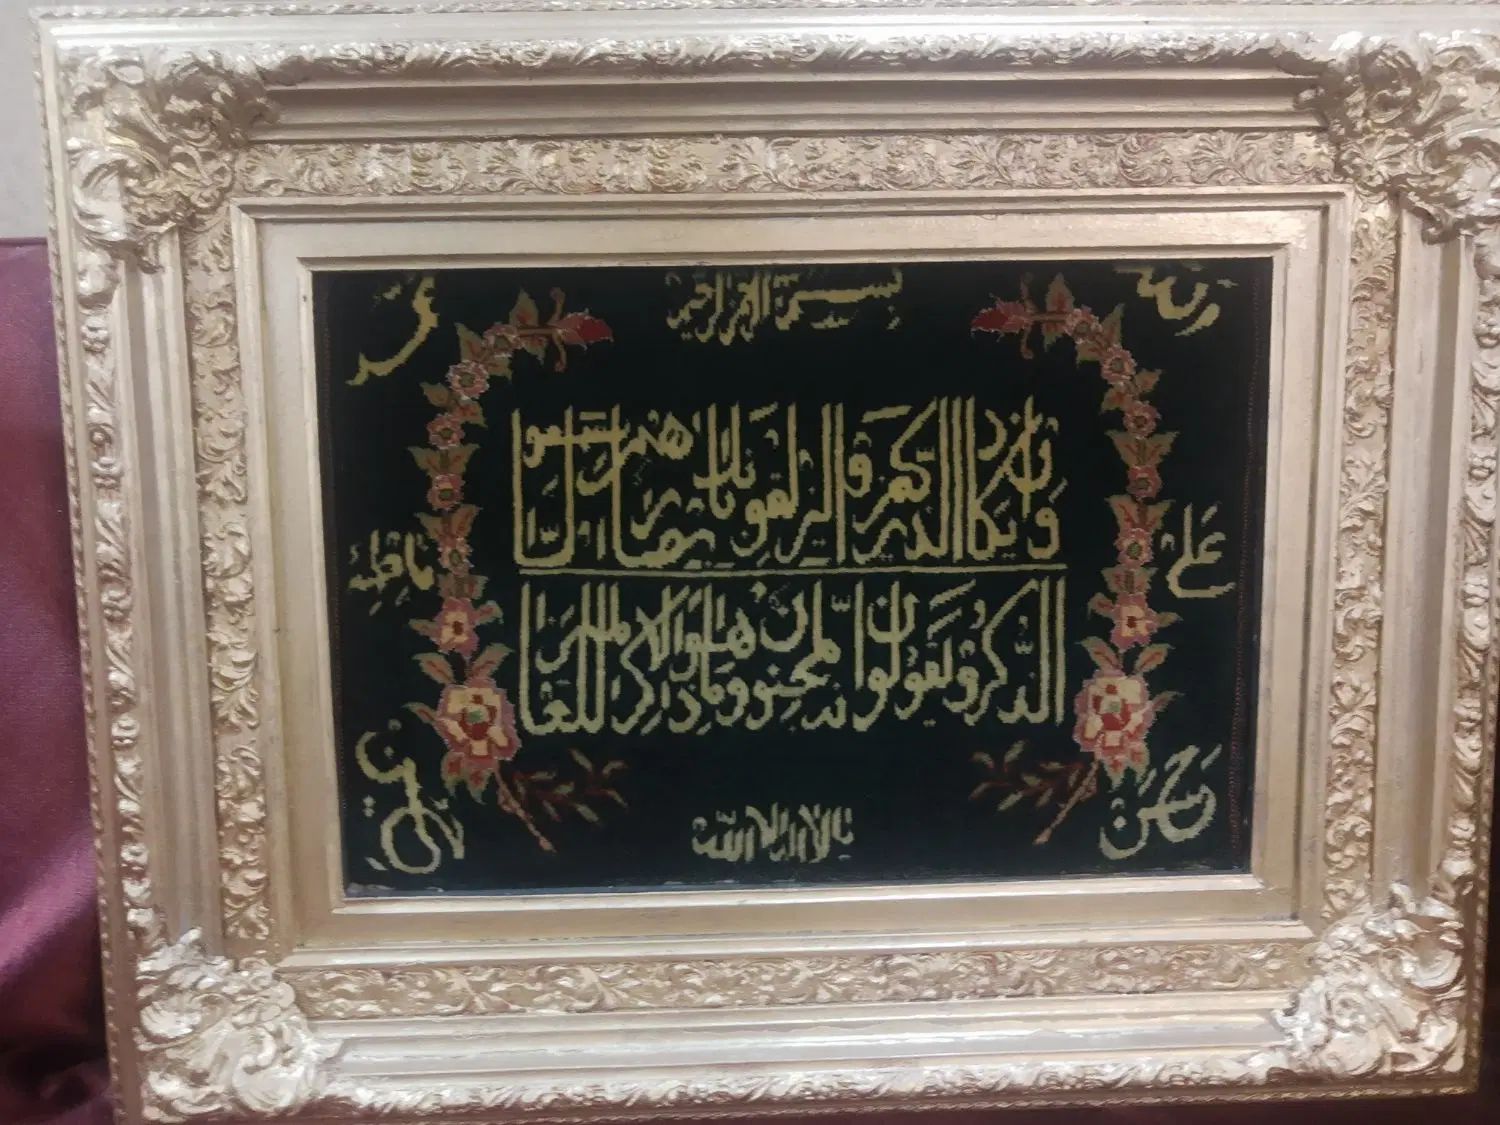 الله
بسم الله الرحمن الرحيم
محمد
وان يكاد الذين كفروا ليزلقونك بابصارهم لما سمعوا
علی
فاطمة
الذكر ويقولون انه لمجنون وما هو الا ذكر للعالمين
حسن
حسين